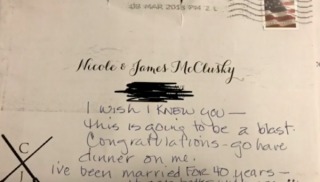 09 MAR 2015 PM 2 L
Nicole & James McClusky
I WISH I KNEW YOU —
this is going to be a blast.
Congratulations - go have
dinner on me.
C
I've been married FOR 40 years —